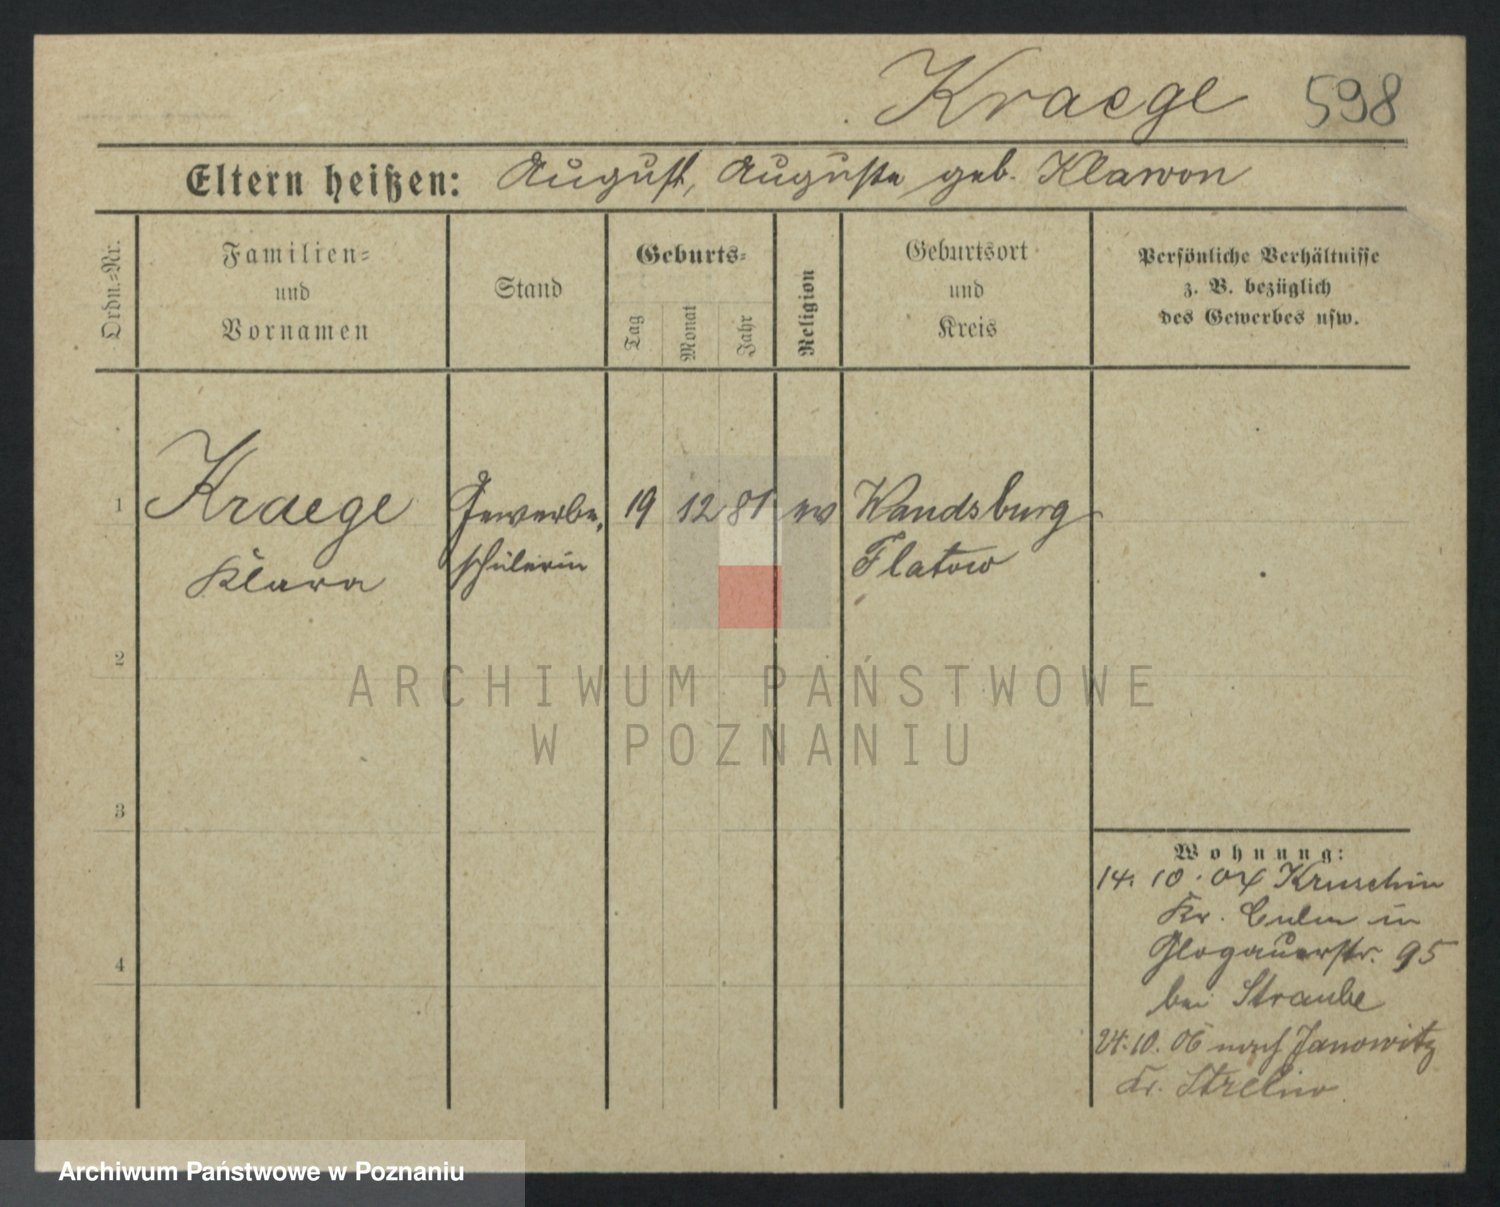 Kraege 598
Eltern heißen: August, Auguste geb. Klawon
Ordn.-Nr.
Familien-
und
Vornamen
Stand
Geburts-
Tag
Monat
Jahr
Religion
Geburtsort
und
Kreis
Persönliche Verhältnisse
z. B. bezüglich
des Gewerbes usw.
1 Kraege Gewerbe- 19 12 81 ev Wandsburg
Klara schülerin Flatow
2
ARCHIWUM PAŃSTWOWE
W POZNANIU
3
Wohnung:
14. 10. 04 Kruschin
Kr. Culm in
Glogauerstr. 95
4
bei Straube
24. 10. 06 nach Janowitz
Kr. Strelno
Archiwum Państwowe w Poznaniu